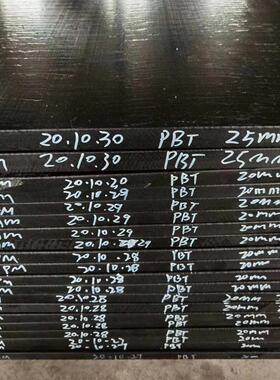 20.10.30 PBT 25mm
M 20.10.30 PBT 25mm
M 20.10.30 PBT 20mm
M 20.10.29 PBT 20mm
M 20.10.28 PBT 20mm
M 20.10.29 PBT 20mm
M 20.10.29 PBT 20mm
M 20.10. 29 PBT 20mm
M 20.10.28 PBT 20mm
PM 20.10.28 PBT 20mm
M 20.10.28 PBT 20mm
M 20.10.28 PBT 20mm
20.10.28 PBT 20mm
M 20.10.28 PBT 20mm
20.10.28 PBT 20mm
20.10.28 PBT 20mm
20.10.28 PBT 20mm
M 20.10.27 PBT 20mm
20.10.27 PBT 20mm